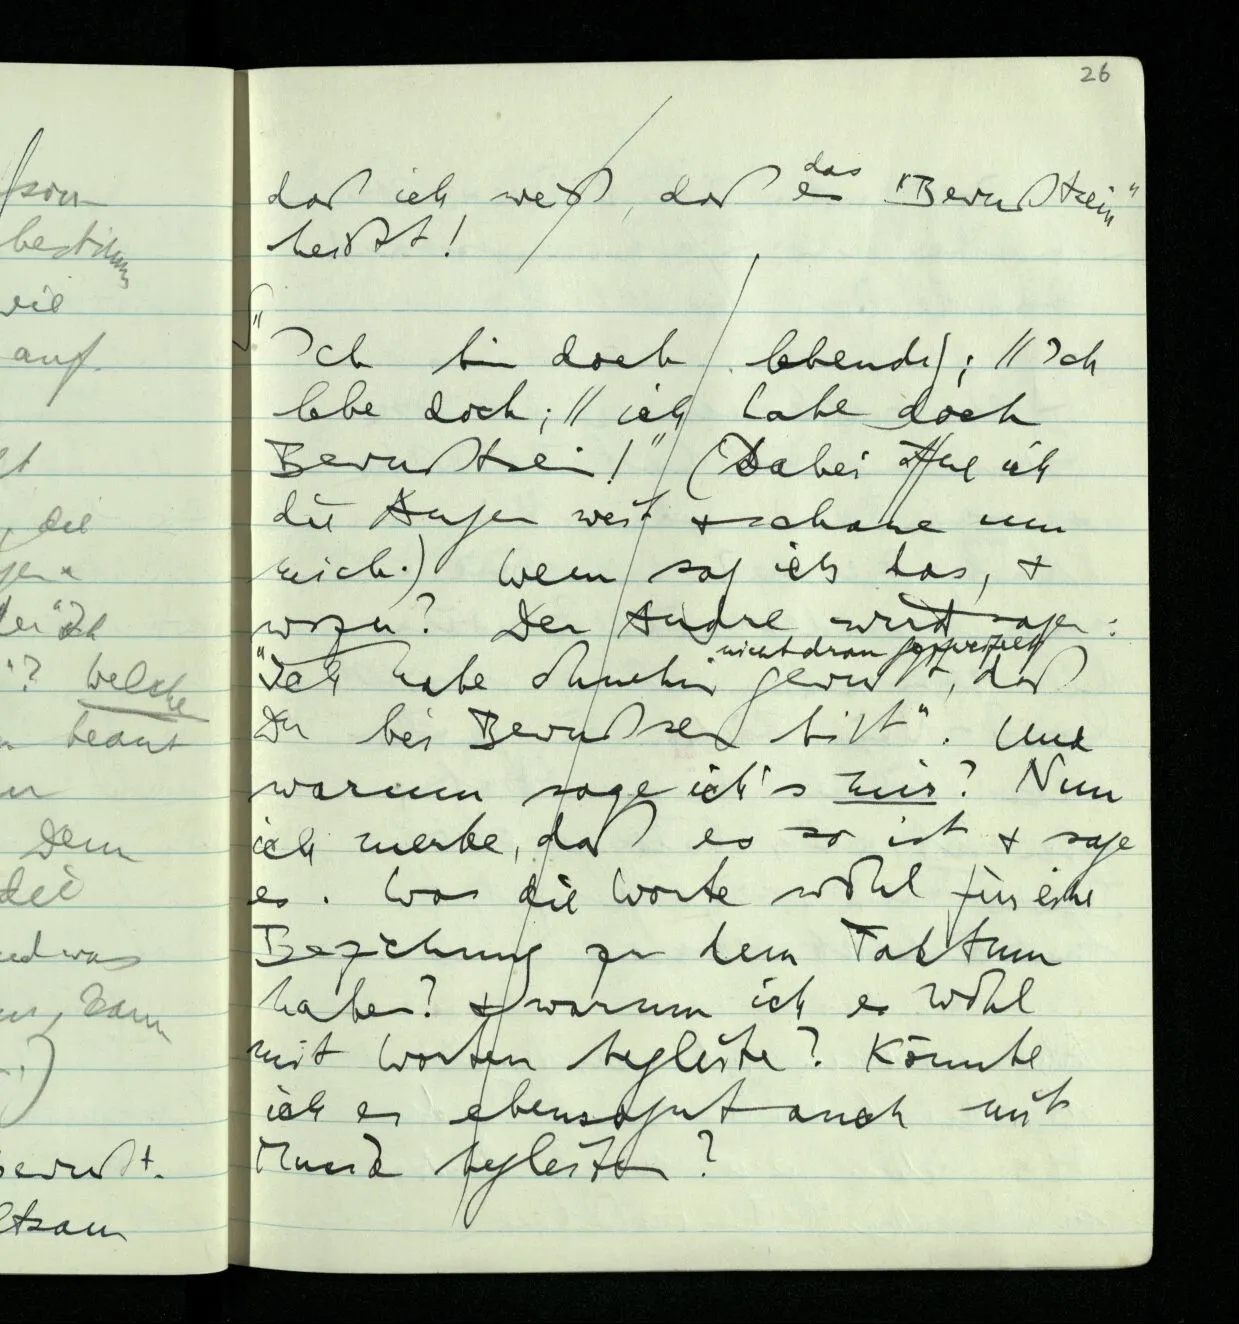 26
daß ich weiß, daß es das "Bewußtsein"
heißt!
"Ich bin doch lebendig; // Ich
lebe doch; // ich habe doch
Bewußtsein!" (Dabei öffne ich
die Augen weit & schaue um
mich.) Wem sag ich das, &
wozu? Der Andre wird sagen:
"Ich habe ohnehin gewußt, daß
nicht dran gezweifelt
Du bei Bewußtsein bist". Und
warum sage ich's mir? Nun
ich merke, daß es so ist & sage
es. Was die Worte wohl für eine
Beziehung zu dem Faktum
haben? & warum ich es wohl
mit Worten begleite? Könnte
ich es ebensogut auch mit
Musik begleiten?
wie
auf.
die
"? Welche
Dem
die
und was
kann
bewußt.
ltsam